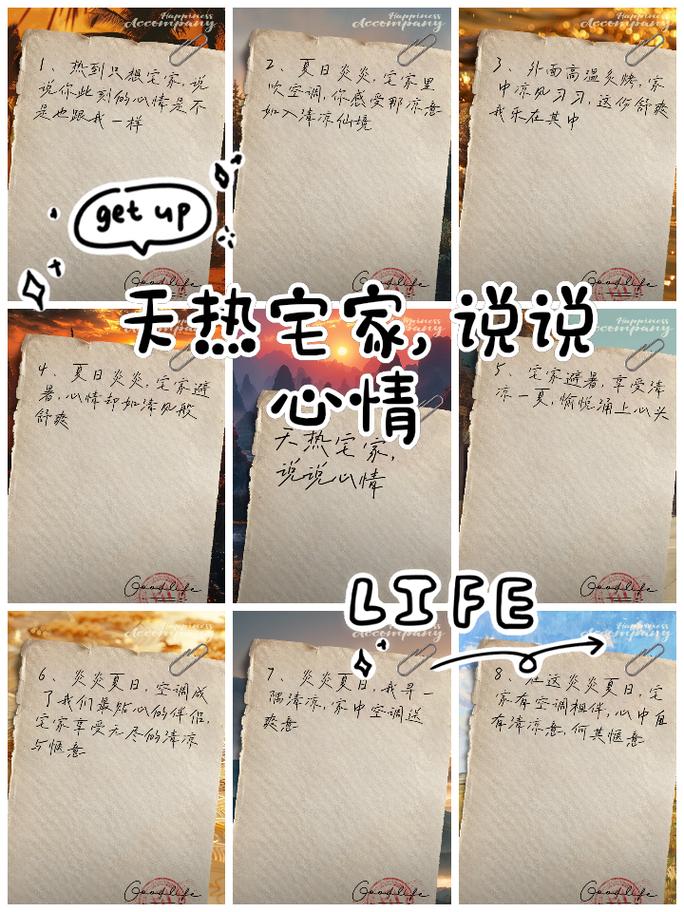 Happiness
Accompany
1、热到只想宅家，说
说你此刻的心情是不
是也跟我一样
Goodlife
Happiness
Accompany
2、夏日炎炎，宅家里
吹空调，你感受那凉意
如入清凉仙境
Goodlife
Happiness
Accompany
3、外面高温炙烤，家
中凉风习习，这份舒爽
我乐在其中
Goodlife
get up
天热宅家，说说
心情
4、夏日炎炎，宅家避
暑，心情却如清风般
舒爽
Goodlife
天热宅家，
说说心情
Happiness
Accompany
5、宅家避暑，享受清
凉一夏，愉悦涌上心头
Goodlife
LIFE
Happiness
Accompany
6、炎炎夏日，空调成
了我们最贴心的伴侣，
宅家享受无尽的清凉
与惬意
Goodlife
Happiness
Accompany
7、炎炎夏日，我寻一
隅清凉，家中空调送
爽意
Goodlife
Happiness
Accompany
8、在这炎炎夏日，宅
家有空调相伴，心中自
有清凉意，何其惬意
Goodlife